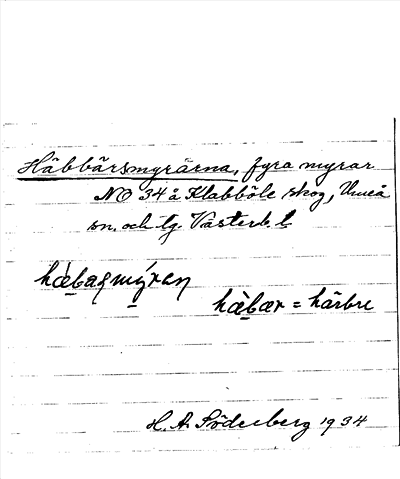 Häbbärsmyrärna, fyra myrar
NO 34 å Klabböle skog, Umeå
sn. och lg. Västerb. l
hæ̀baṣmýran
hæ̀bær = härbre
H. A. Söderberg 1934